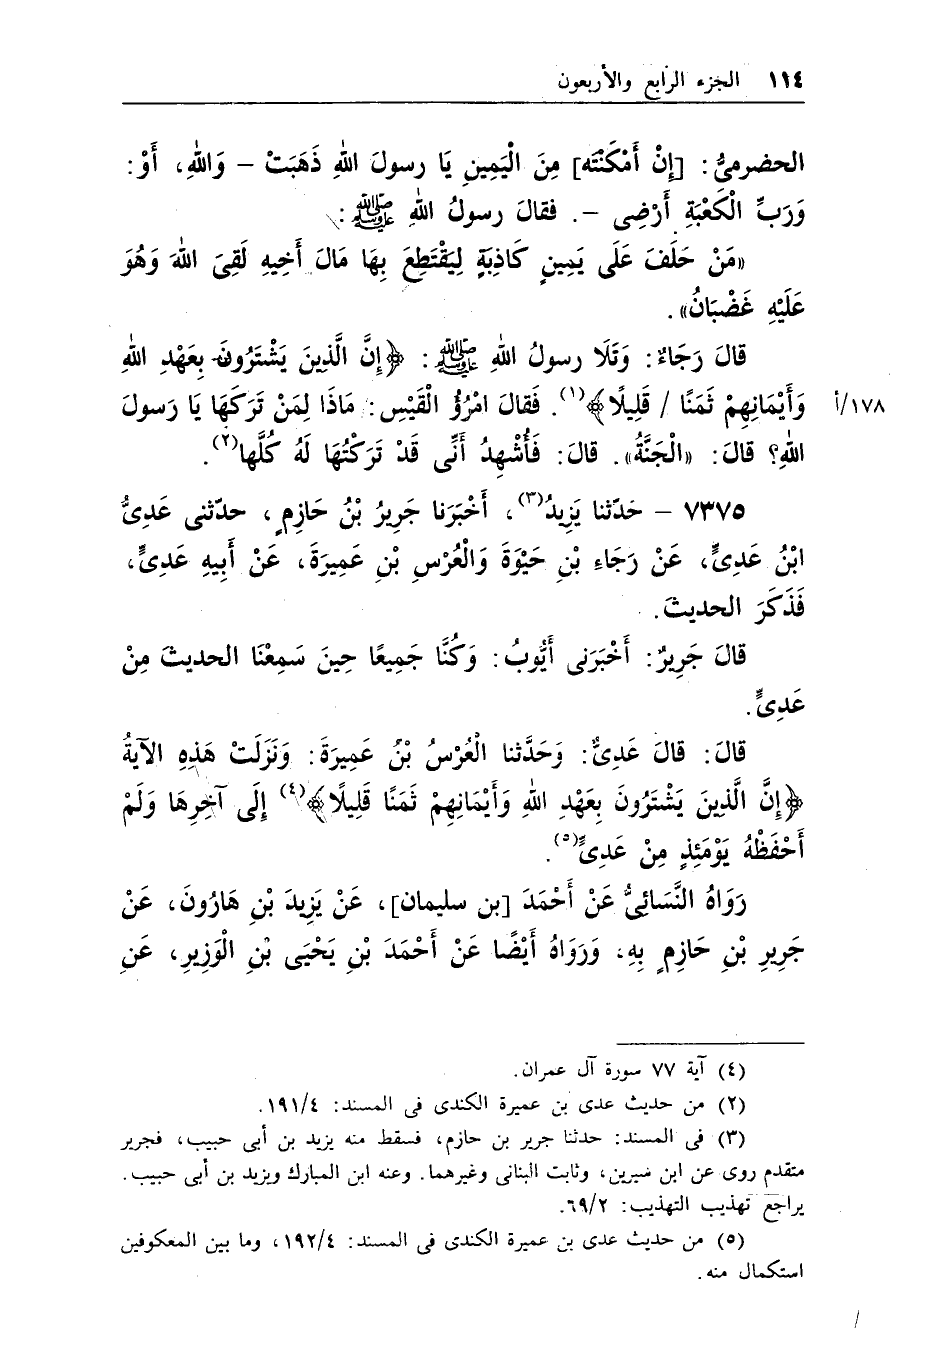 ١١٤ الجزء الرابع والأربعون
الحضرمىُّ: [إِنْ أَمْكَنْتَه] مِنَ الْيَمِينِ يَا رسولَ اللهِ ذَهَبَتْ – وَاللهِ، أَوْ:
وَرَبِّ الْكَعْبَةِ أَرْضِى –. فقالَ رسولُ اللهِ ﷺ:
«مَنْ حَلَفَ عَلَى يَمِينٍ كَاذِبَةٍ لِيَقْتَطِعَ بِهَا مَالَ أَخِيهِ لَقِىَ اللهَ وَهُوَ
عَلَيْهِ غَضْبَانُ».
قالَ رَجَاءٌ: وَتَلَا رسولُ اللهِ ﷺ: ﴿إِنَّ الَّذِينَ يَشْتَرُونَ بِعَهْدِ اللهِ
وَأَيْمَانِهِمْ ثَمَنًا / قَلِيلًا﴾(١). فَقالَ امْرُؤُ الْقَيْسِ: مَاذَا لِمَنْ تَرَكَهَا يَا رَسولَ ١٧٨/أ
اللهِ؟ قالَ: «الْجَنَّةُ». قالَ: فَأُشْهِدُ أَنِّى قَدْ تَرَكْتُهَا لَهُ كُلَّها(٢).
٧٣٧٥ – حَدّثنا يَزِيدُ(٣)، أَخْبَرَنا جَرِيرُ بْنُ حَازِمٍ، حدّثنى عَدِىُّ
ابْنُ عَدِىٍّ، عَنْ رَجَاءِ بْنِ حَيْوَةَ وَالْعُرْسِ بْنِ عَمِيرَةَ، عَنْ أَبِيهِ عَدِىٍّ،
فَذَكَرَ الحديثَ.
قالَ جَرِيرٌ: أَخْبَرَنى أَيُّوبُ: وَكُنَّا جَمِيعًا حِينَ سَمِعْنَا الحديثَ مِنْ
عَدِىٍّ.
قالَ: قالَ عَدِىٌّ: وَحَدَّثنا الْعُرْسُ بْنُ عَمِيرَةَ: وَنَزَلَتْ هَذِهِ الآيَةُ
﴿إِنَّ الَّذِينَ يَشْتَرُونَ بِعَهْدِ اللهِ وَأَيْمَانِهِمْ ثَمَنًا قَلِيلًا﴾(٤) إِلَى آخِرِهَا وَلَمْ
أَحْفَظْهُ يَوْمَئِذٍ مِنْ عَدِىٍّ(٥).
رَوَاهُ النَّسَائِىُّ عَنْ أَحْمَدَ [بن سليمان]، عَنْ يَزِيدَ بْنِ هَارُونَ، عَنْ
جَرِيرِ بْنِ حَازِمٍ بِهِ، وَرَوَاهُ أَيْضًا عَنْ أَحْمَدَ بْنِ يَحْيَى بْنِ الْوَزِيرِ، عَنِ
(٤) آية ٧٧ سورة آل عمران.
(٢) من حديث عدى بن عميرة الكندى فى المسند: ١٩١/٤.
(٣) فى المسند: حدثنا جرير بن حازم، فسقط منه يزيد بن أبى حبيب، فجرير
متقدم روى عن ابن سيرين، وثابت البنانى وغيرهما. وعنه ابن المبارك ويزيد بن أبى حبيب.
يراجع تهذيب التهذيب: ٦٩/٢.
(٥) من حديث عدى بن عميرة الكندى فى المسند: ١٩٢/٤، وما بين المعكوفين
استكمال منه.